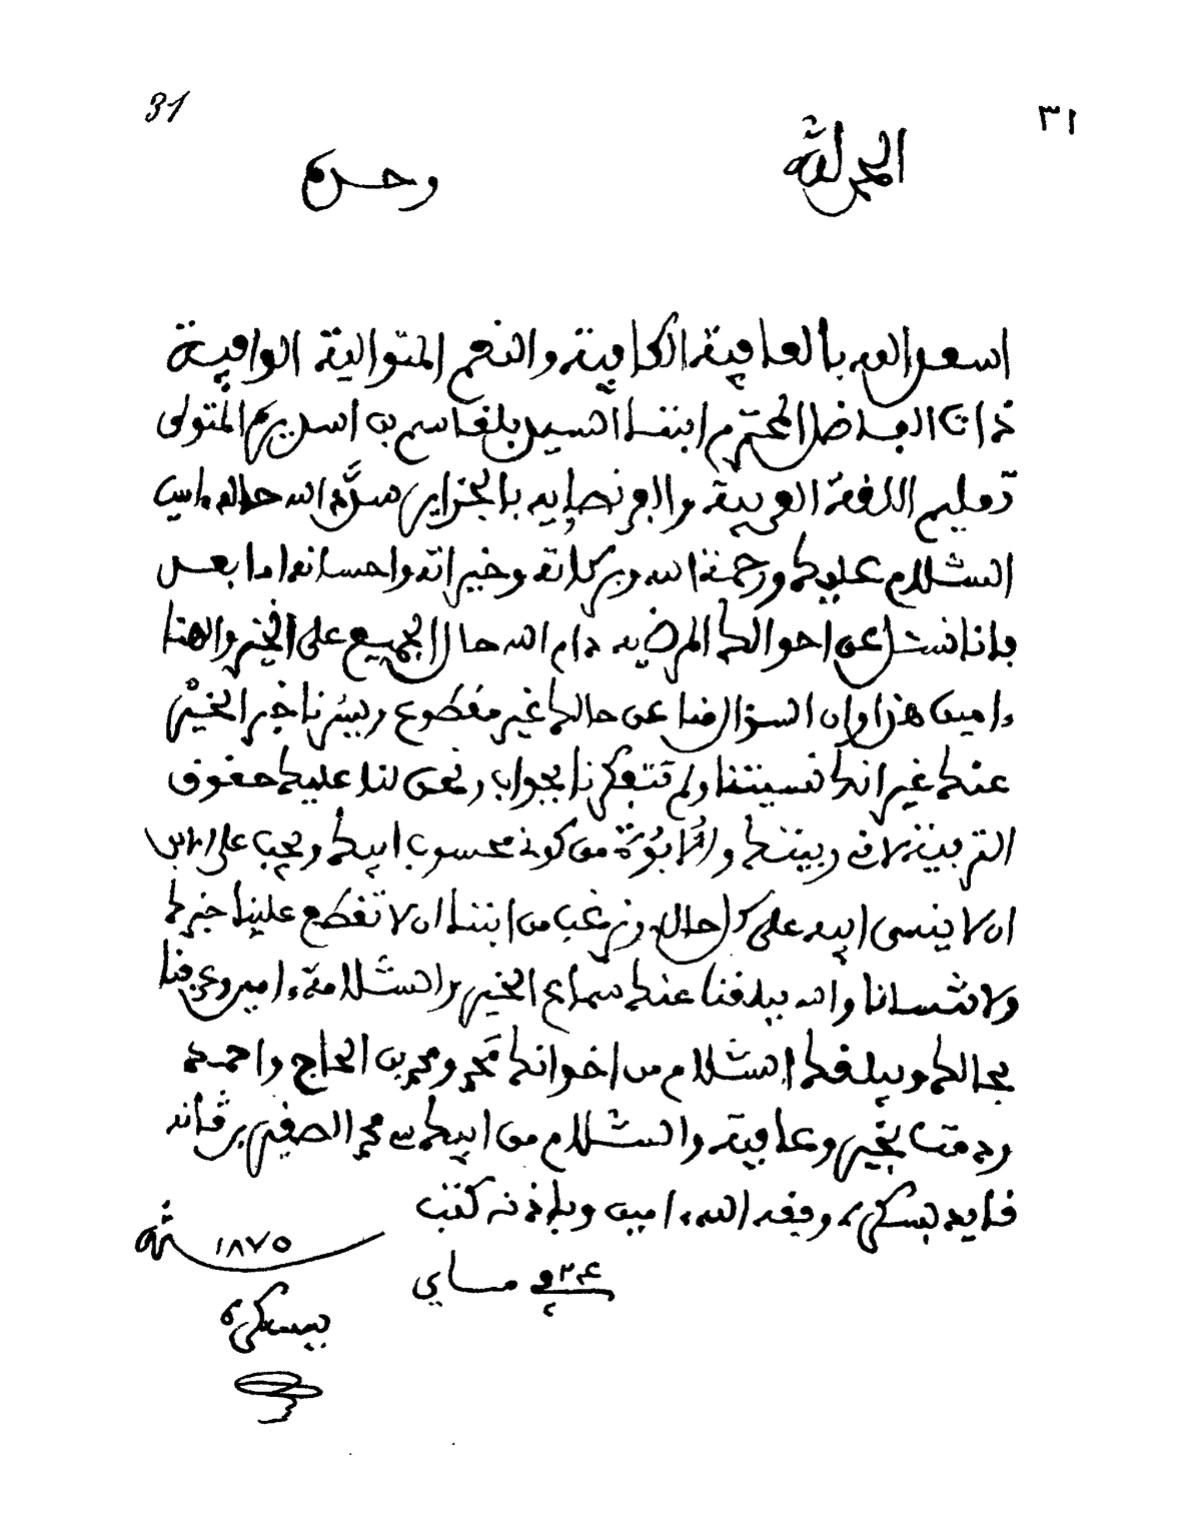 31 ٣١
الحمد لله وحده
اسعد الله بالعافية الكافية والنعم المتوالية الوافية
ذات الفاضل المحترم ابننا السيد بلقاسم بن اسديره المتولى
تعليم اللغة العربية والفرنصاويه بالجزاير سدَّد الله حاله ءامين
السّلام عليكم ورحمة الله وبركاته وخيراته واحسانه اما بعد
فاننا نسئل عن احوالكم المرضيه دام الله حال الجميع على الخير والهنا
ءامين هذا وان السؤال منا عن حالكم غير مقطوع ويسرنا خبر الخير
عنكم غير انكم نسيتنا ولم تتفكرنا بجواب ونحن لنا عليكم حقوق
التربية لاني ربيتكم والأُبُوّة من كوني محسوب ابيكم ويجب على
ان لا ينسى ابيه على كل حال ونرغب من ابننا ان لا تقطع علينا خبركم
ولا تنسانا والله يبلغنا عنكم سماع الخير والسّلامة ءامين وعرفنا
بحالكم ويبلغكم السّلام من اخوانكم محمد ومحمد بن الحاج واحمد
ودمت بخير وعافية والسّلام من ابيكم سي محمد الصغير بن ڨانه
قايد بسكره وفقه الله ءامين وباذنه كتب
في ٢٤ ماي سنة ١٨٧٥
ببسكره